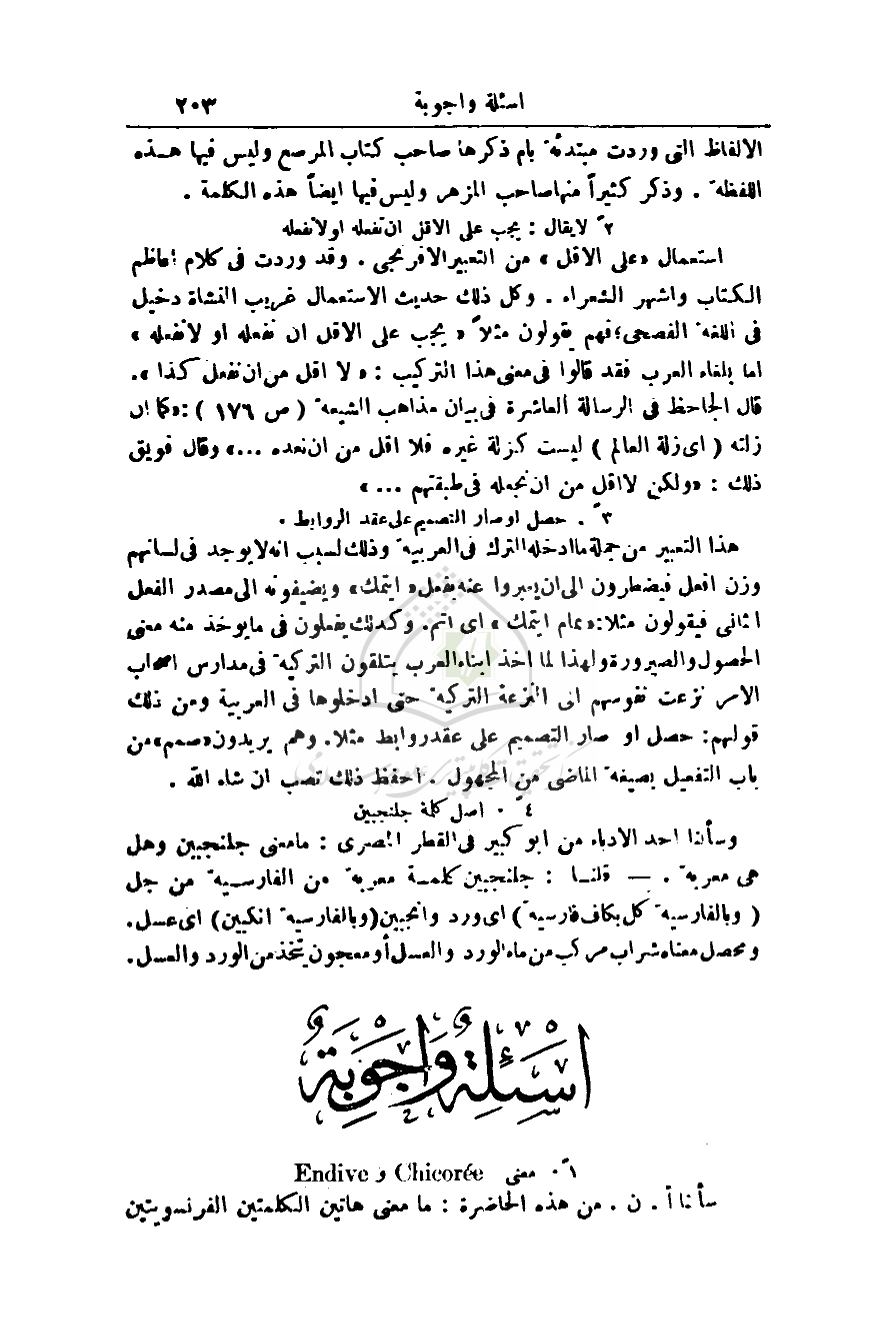 اسئلة واجوبة ٢٠٣
الالفاظ التى وردت مبتدئة بام ذكرها صاحب كتاب المرصع وليس فيها هـذه
اللفظة . وذكر كثيراً منها صاحب المزهر وليس فيها ايضاً هذه الكلمة .
٢ً لا يقال : يجب على الاقل ان تفعله او لا تفعله
استعمال «على الاقل» من التعبير الافرنجى . وقد وردت فى كلام اعاظم
الكتاب واشهر الشعراء . وكل ذلك حديث الاستعمال غريب النشاة دخيل
فى اللغة الفصحى؛ فهم يقولون مثلاً « يجب على الاقل ان تفعله او لا تفعله »
اما بلغاء العرب فقد قالوا فى معنى هذا التركيب : « لا اقل من ان تفعل كذا ».
قال الجاحظ فى الرسالة العاشرة فى بيان مذاهب الشيعة ( ص ١٧٦ ) : «كما ان
زلته ( اى زلة العالم ) ليست كزلة غيره فلا اقل من ان نعده ...» وقال فويق
ذلك : «ولكن لا اقل من ان نجعله فى طبقتهم ... »
٣ً . حصل او صار التصميم على عقد الروابط .
هذا التعبير من جملة ما ادخله الترك فى العربية وذلك لسبب انه لا يوجد فى لسانهم
وزن افعل فيضطرون الى ان يعبروا عنه بفعل « ايتمك» ويضيفونه الى مصدر الفعل
الثانى فيقولون مثلا: «تمام ايتمك » اى اتم. وكذلك يفعلون فى ما يوخذ منه معنى
الحصول والصيرورة ولهذا لما اخذ ابناء العرب يتلقون التركية فى مدارس اصحاب
الامر نزعت نفوسهم الى النزعة التركية حتى ادخلوها فى العربية ومن ذلك
قولهم: حصل او صار التصميم على عقد روابط مثلا. وهم يريدون «صمم» من
باب التفعيل بصيغة الماضى من المجهول . احفظ ذلك تصب ان شاء الله .
٤ً . اصل كلمة جلنجبين
وسألنا احد الادباء من ابو كبير فى القطر المصرى : ما معنى جلنجبين وهل
هى معربة . — قلنـا : جلنجبين كلمـة معربة من الفارسـية من جل
( وبالفارسية كل بكاف فارسية ) اى ورد وانجبين (وبالفارسية انكبين) اى عسل.
ومحصل معناه شراب مركب من ماء الورد والعسل أو معجون يتخذ من الورد والعسل.
اَسْئِلَةٌ وَاَجْوِبَةٌ
١ً . معنى Chicorée و Endive
سألنا أ . ن . من هذه الحاضرة : ما معنى هاتين الكلمتين الفرنسويتين